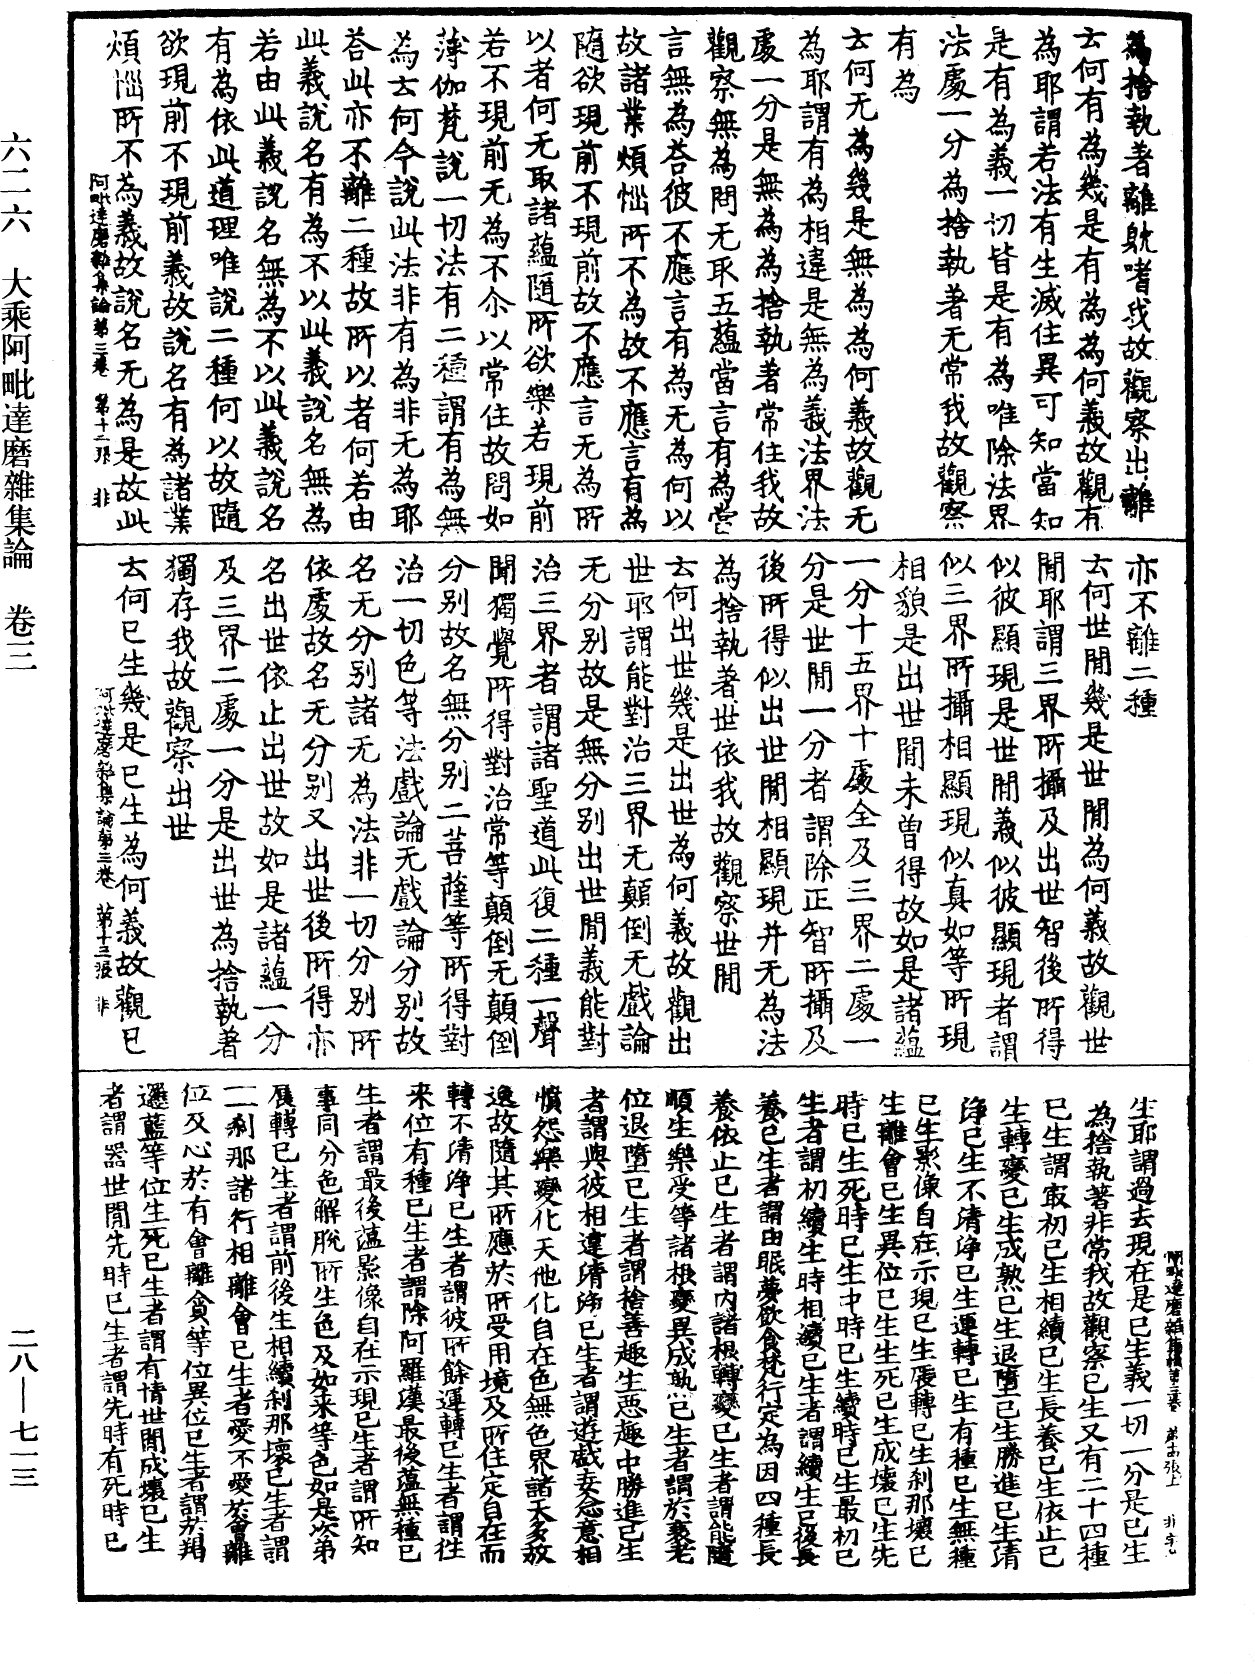 六二六　大乘阿毗達磨雜集論　卷三
二八—七一三
為捨執著離躭嗜我故觀察出離
云何有為幾是有為為何義故觀有
為耶謂若法有生滅住異可知當知
是有為義一切皆是有為唯除法界
法處一分為捨執著无常我故觀察
有為
云何无為幾是無為為何義故觀无
為耶謂有為相違是無為義法界法
處一分是無為為捨執著常住我故
觀察無為問无取五蘊當言有為當
言無為荅彼不應言有為无為何以
故諸業煩惱所不為故不應言有為
隨欲現前不現前故不應言无為所
以者何无取諸蘊隨所欲樂若現前
若不現前无為不尒以常住故問如
薄伽梵說一切法有二種謂有為無
為云何今說此法非有為非无為耶
荅此亦不離二種故所以者何若由
此義說名有為不以此義說名無為
若由此義說名無為不以此義說名
有為依此道理唯說二種何以故隨
欲現前不現前義故說名有為諸業
煩惱所不為義故說名无為是故此
阿毗達磨雜集論第三卷　第十二張　非
亦不離二種
云何世間幾是世間為何義故觀世
間耶謂三界所攝及出世智後所得
似彼顯現是世間義似彼顯現者謂
似三界所攝相顯現似真如等所現
相貌是出世間未曾得故如是諸蘊
一分十五界十處全及三界二處一
分是世間一分者謂除正智所攝及
後所得似出世間相顯現并无為法
為捨執著世依我故觀察世間
云何出世幾是出世為何義故觀出
世耶謂能對治三界无顛倒无戲論
无分别故是無分别出世間義能對
治三界者謂諸聖道此復二種一聲
聞獨覺所得對治常等顛倒无顛倒
分别故名無分别二菩薩等所得對
治一切色等法戲論无戲論分别故
名无分别諸无為法非一切分别所
依處故名无分别又出世後所得亦
名出世依止出世故如是諸蘊一分
及三界二處一分是出世為捨執著
獨存我故觀察出世
云何已生幾是已生為何義故觀已
阿毗達磨雜集論第三卷　第十三張　非
生耶謂過去現在是已生義一切一分是已生
為捨執著非常我故觀察已生又有二十四種
已生謂最初已生相續已生長養已生依止已
生轉變已生成熟已生退墮已生勝進已生清
淨已生不清淨已生運轉已生有種已生無種
已生影像自在示現已生展轉已生刹那壞已
生離會已生異位已生生死已生成壞已生先
時已生死時已生中時已生續時已生最初已
生者謂初續生時相續已生者謂續生已後長
養已生者謂由眠夢飲食梵行定為因四種長
養依止已生者謂內諸根轉變已生者謂能隨
順生樂受等諸根變異成熟已生者謂於衰老
位退墮已生者謂捨善趣生惡趣中勝進已生
者謂與彼相違清淨已生者謂遊戲妄忿意相
憤怨樂變化天他化自在色無色界諸天多放
逸故隨其所應於所受用境及所住定自在而
轉不清淨已生者謂彼所餘運轉已生者謂往
來位有種已生者謂除阿羅漢最後蘊無種已
生者謂最後蘊影像自在示現已生者謂所知
事同分色解脫所生色及如來等色如是次第
展轉已生者謂前後生相續刹那壞已生者謂
一一刹那諸行相離會已生者愛不愛於會離
位及心於有會離貪等位異位已生者謂於羯
邏藍等位生死已生者謂有情世間成壞已生
者謂器世間先時已生者謂先時有死時已